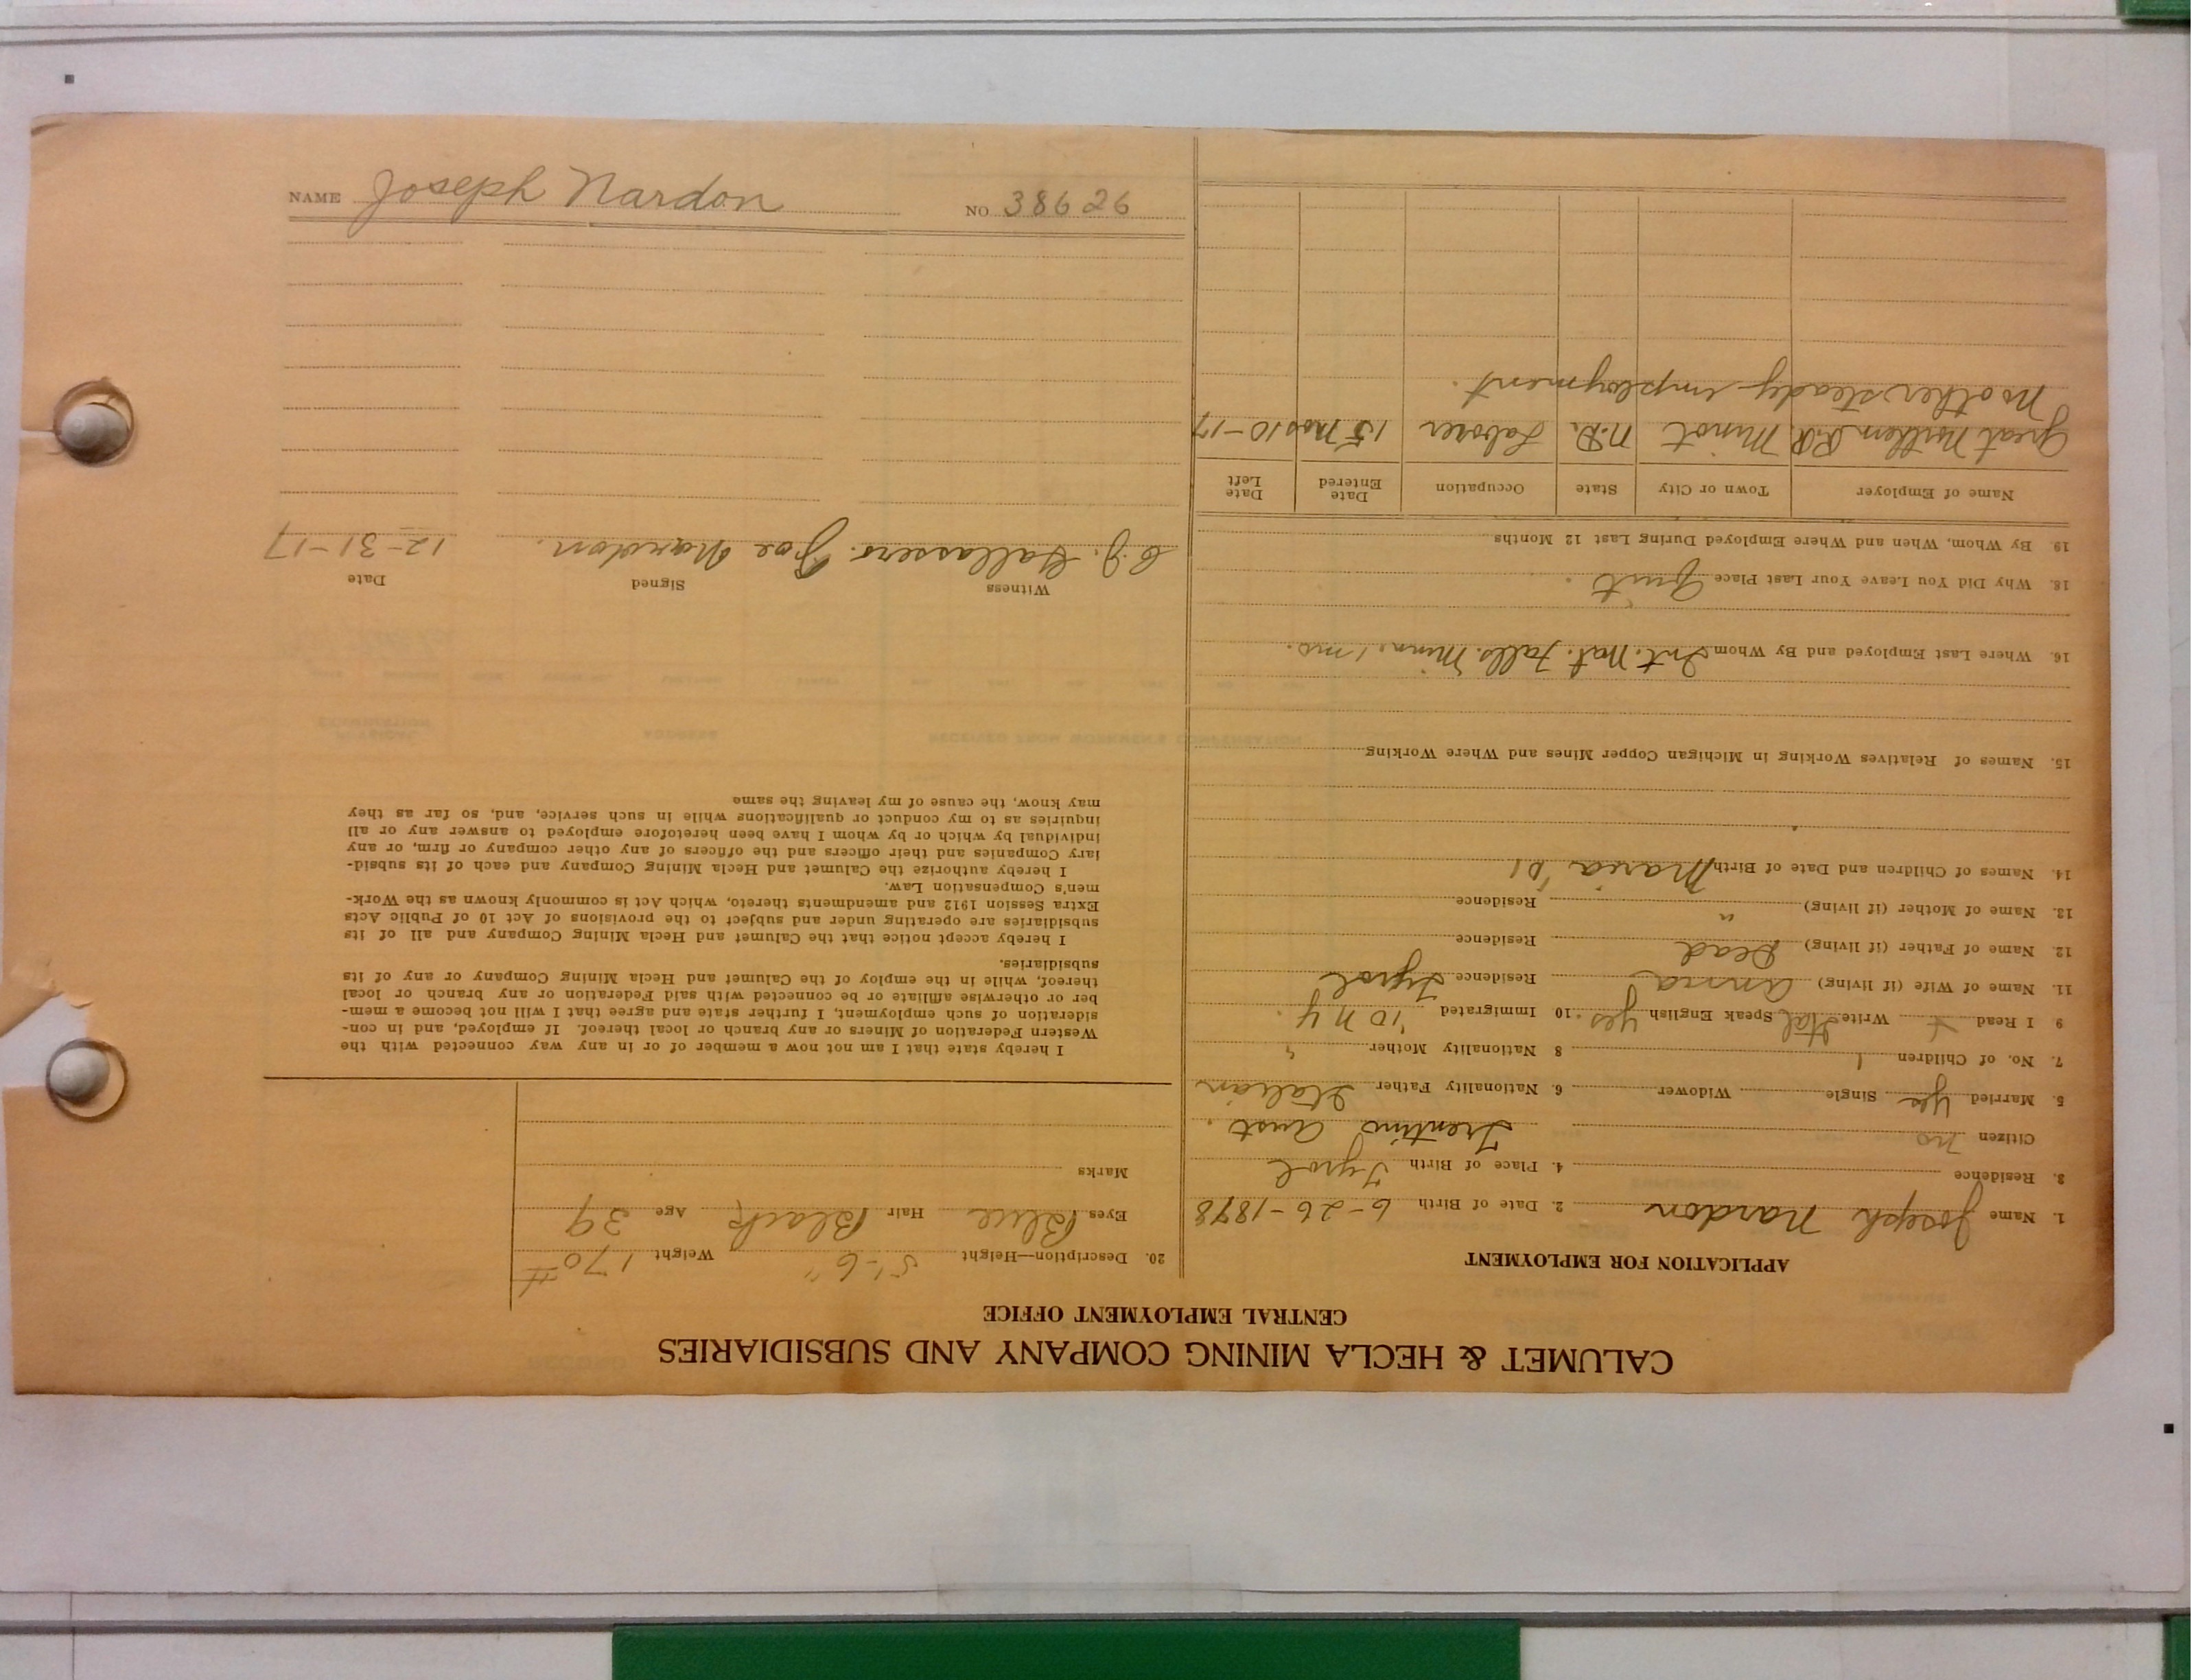 CALUMET & HECLA MINING COMPANY AND SUBSIDIARIES
CENTRAL EMPLOYMENT OFFICE
APPLICATION FOR EMPLOYMENT
1. Name Joseph Nardon 2. Date of Birth 6-26-1878
3. Residence 4. Place of Birth Tyrol
Citizen no Trentino Aust.
5. Married Yes Single Widower 6. Nationality Father Italian
7. No. of Children 1 8 Nationality Mother "
9 I Read + Write Ital Speak English Yes. 10 Immigrated '10 N.Y.
11. Name of Wife (if living) Anna Residence Tyrol
12. Name of Father (if living) Dead Residence
13. Name of Mother (if living) " Residence
14. Names of Children and Date of Birth Maria '01
15. Names of Relatives Working in Michigan Copper Mines and Where Working
16. Where Last Employed and By Whom Int. Nat. Falls. Minn. 1 mo.
18. Why Did You Leave Your Last Place Quit.
19. By Whom, When and Where Employed During Last 12 Months
Name of Employer Town or City State Occupation Date Entered Date Left
Great Northern R.R. Minot N.D. Laborer 15 mos 10-17
No other steady employment.
20. Description—Height 5'-6" Weight 170#
Eyes Blue Hair Black Age 39
Marks
I hereby state that I am not now a member of or in any way connected with the
Western Federation of Miners or any branch or local thereof. If employed, and in con-
sideration of such employment, I further state and agree that I will not become a mem-
ber or otherwise affiliate or be connected with said Federation or any branch or local
thereof, while in the employ of the Calumet and Hecla Mining Company or any of its
subsidiaries.
I hereby accept notice that the Calumet and Hecla Mining Company and all of its
subsidiaries are operating under and subject to the provisions of Act 10 of Public Acts
Extra Session 1912 and amendments thereto, which Act is commonly known as the Work-
men's Compensation Law.
I hereby authorize the Calumet and Hecla Mining Company and each of its subsid-
iary Companies and their officers and the officers of any other company or firm, or any
individual by which or by whom I have been heretofore employed to answer any or all
inquiries as to my conduct or qualifications while in such service, and, so far as they
may know, the cause of my leaving the same
Witness Signed Date
Joe Nardon. 12-31-17
NAME Joseph Nardon NO 38626